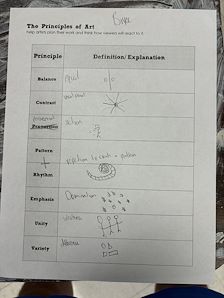 The Principles of Art
help artists plan their work and think how viewers will react to it
Principle
Definition/ Explanation
Balance
equal
Contrast
Movement
Proportion
action
Pattern
+
Rhythm
repetition to create a pattern
Emphasis
Domination
Unity
Variety